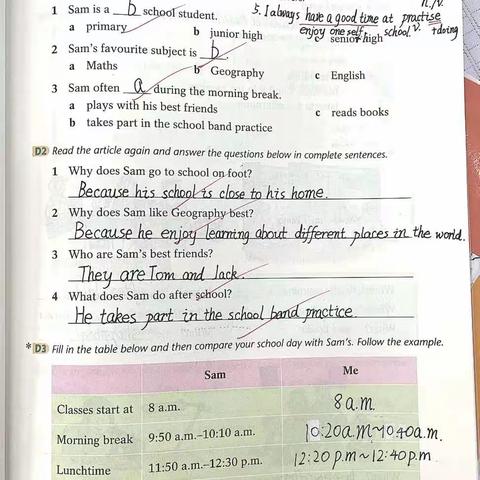 n./v.
1 Sam is a b school student.
5. I always have a good time at practise
enjoy oneself school. v. +doing
a primary b junior high c senior high
2 Sam's favourite subject is b.
a Maths b Geography c English
3 Sam often a during the morning break.
a plays with his best friends c reads books
b takes part in the school band practice
D2 Read the article again and answer the questions below in complete sentences.
1 Why does Sam go to school on foot?
Because his school is close to his home.
2 Why does Sam like Geography best?
Because he enjoy learning about different places in the world.
3 Who are Sam's best friends?
They are Tom and lack.
4 What does Sam do after school?
He takes part in the school band practice.
*D3 Fill in the table below and then compare your school day with Sam's. Follow the example.
Sam Me
Classes start at 8 a.m. 8 a.m.
Morning break 9:50 a.m.–10:10 a.m. 10:20a.m~10:40a.m.
Lunchtime 11:50 a.m.–12:30 p.m. 12:20 p.m~12:40p.m